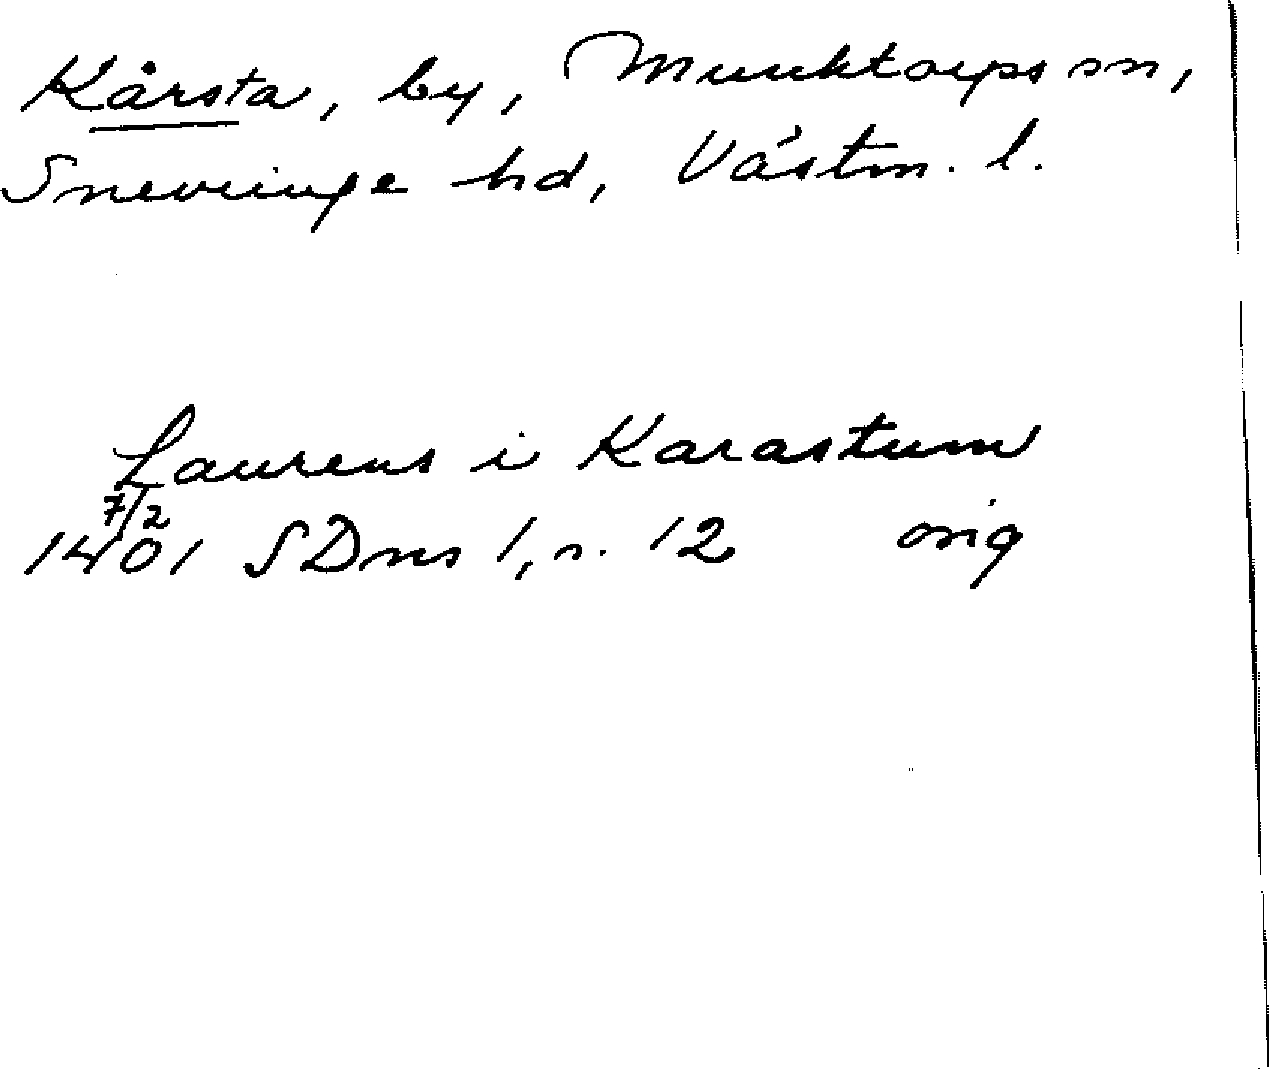 Kårsta, by, Munktorps sn,
Snevringe hd, Västm. l.
Laurens i Karastum
7/2
1401 SDns 1, s. 12 orig